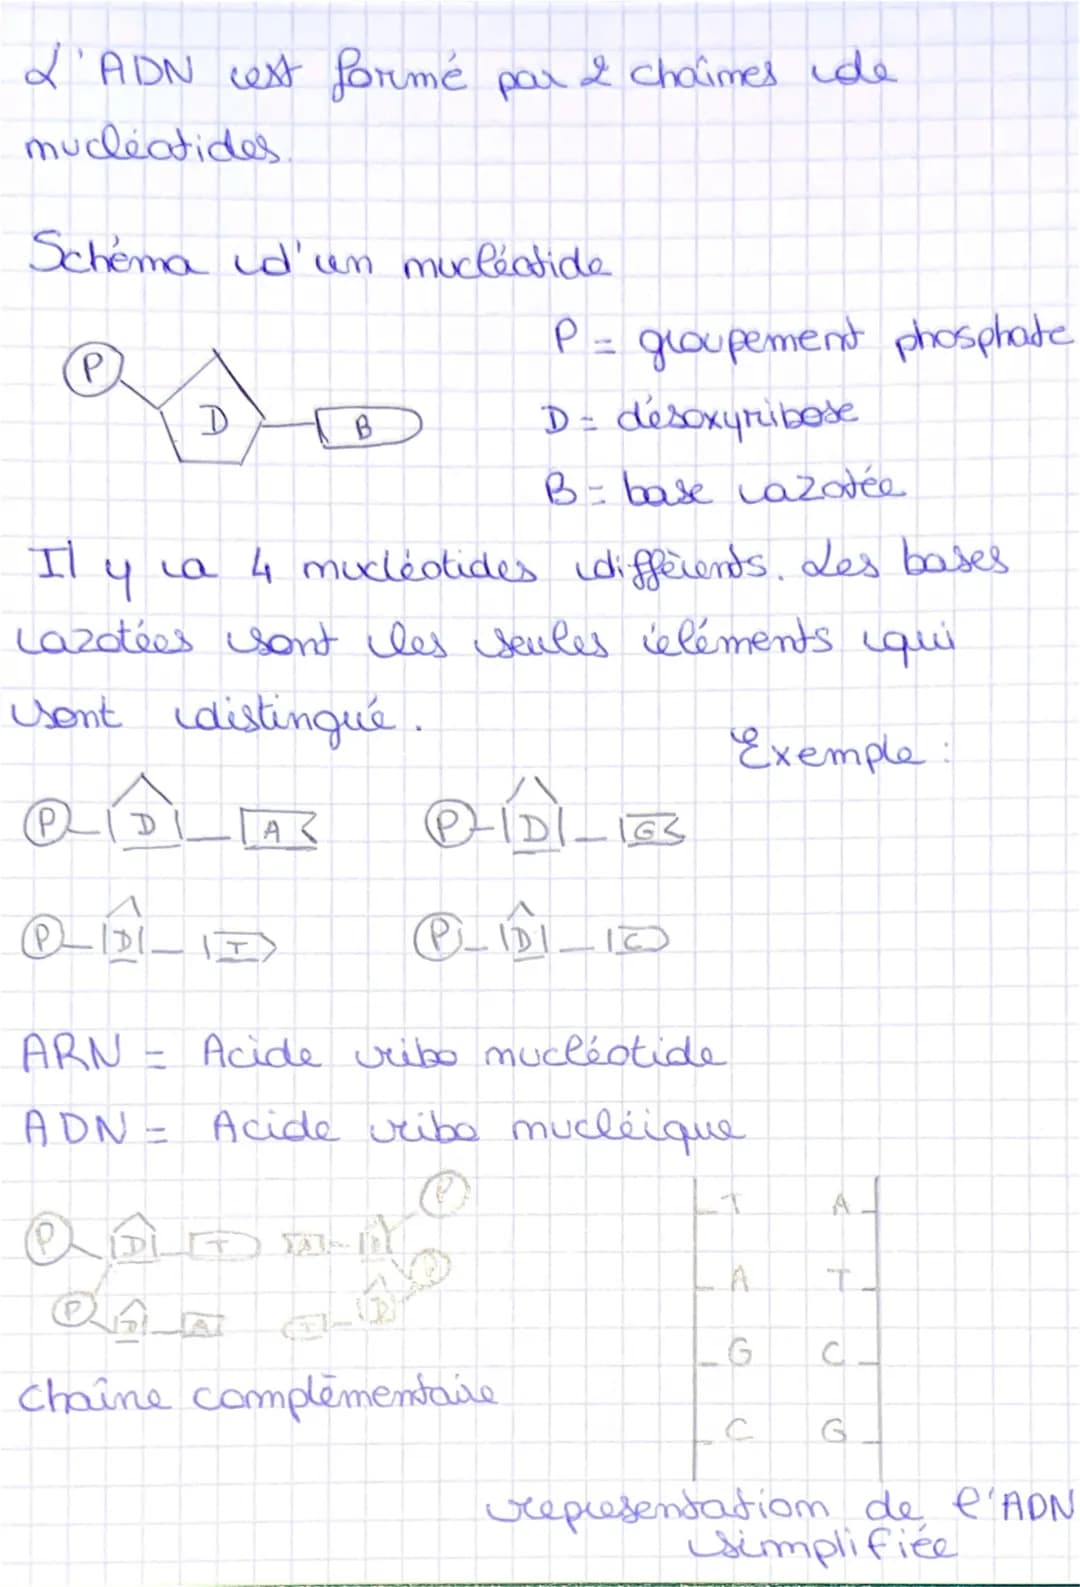 L'ADN est formé par 2 chaînes de
nucléotides.
Schéma d'un nucléotide
P = groupement phosphate
P D B
D = désoxyribose
B = base azotée
Il y a 4 nucléotides différents. Les bases
azotées sont les seules éléments qui
sont distingué.
Exemple :
P D A P D G
P D T P D C
ARN = Acide ribo nucléotide
ADN = Acide ribo nucléique
P D T A D P
P D A T D P
chaîne complémentaire
T A
A T
G C
C G
representation de l'ADN
simplifiée